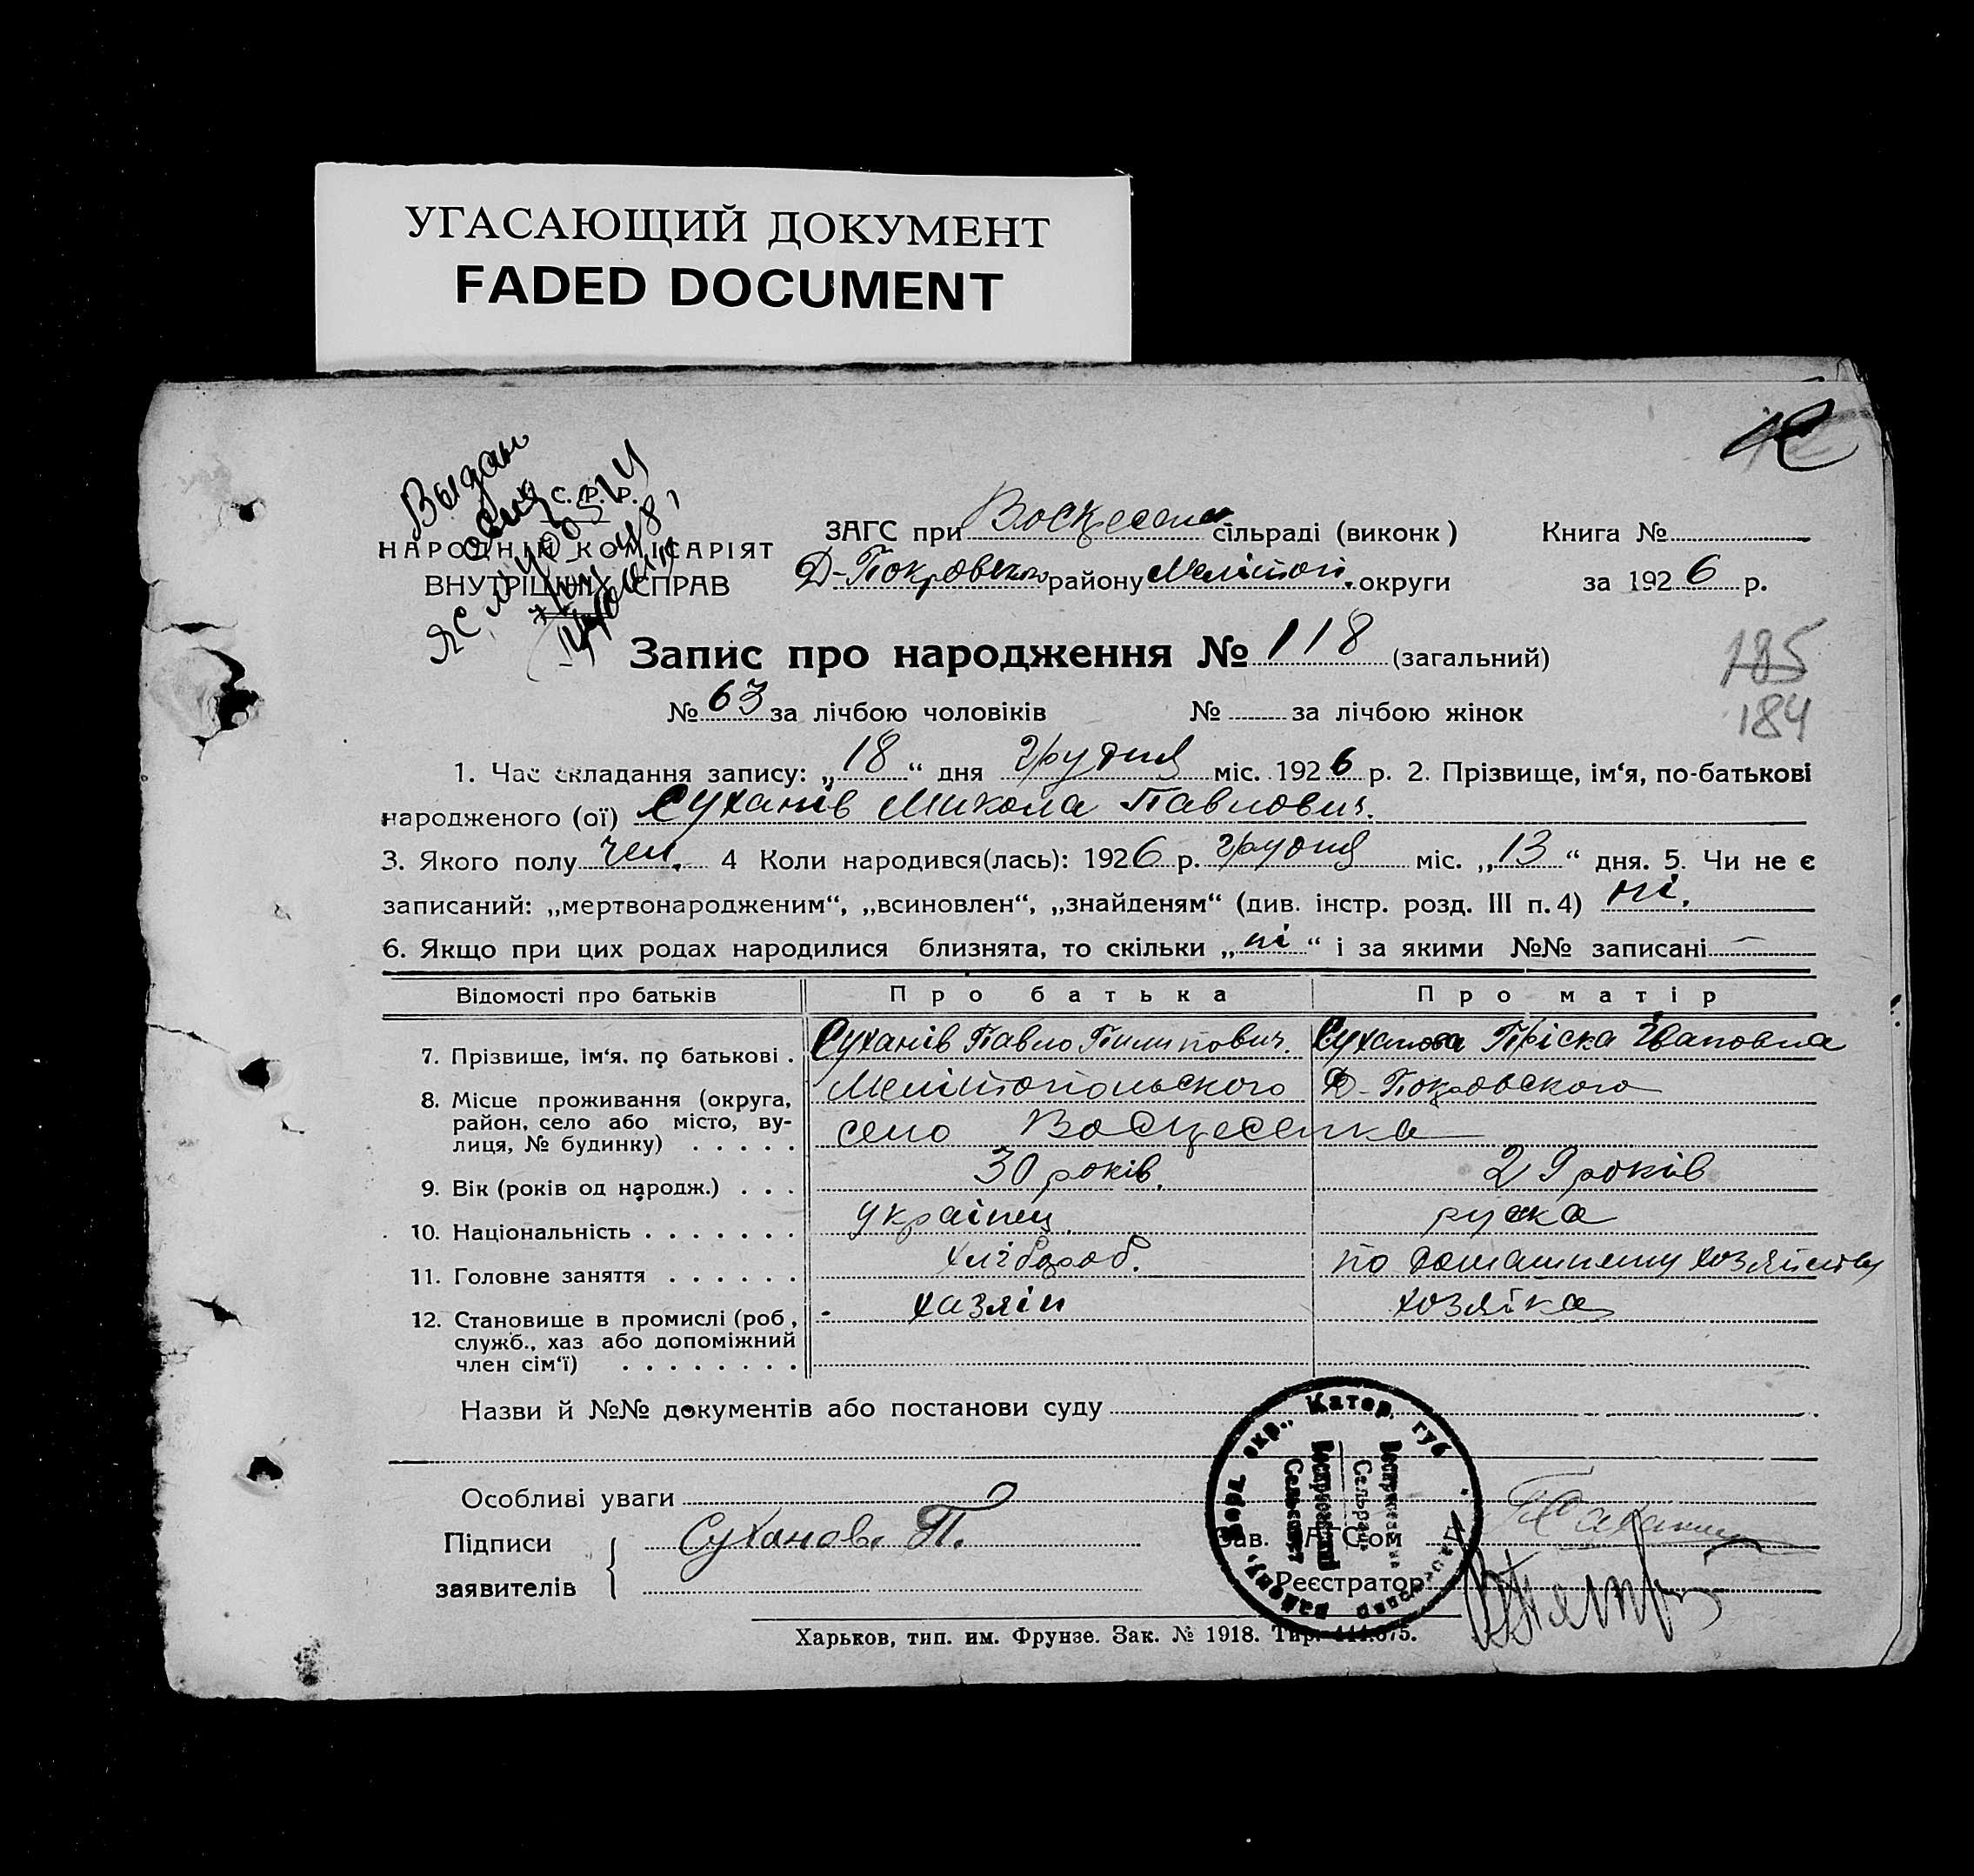 УГАСАЮЩИЙ ДОКУМЕНТ
FADED DOCUMENT
Выдан
С. Р. Р.
НАРОДНІЙ КОМІСАРІЯТ
ВНУТРІШНІХ СПРАВ
ЗАГС при сільраді (виконк)
Д-Покровського району Мелітоп. округи
Книга №
за 1926 р.
Запис про народження № 118 (загальний)
185
184
№ 63 за лічбою чоловіків № за лічбою жінок
1. Час складання запису: „18“ дня грудня міс. 1926 р. 2. Прізвище, ім‘я, по-батькові
народженого (ої) Суханів Микола Павлович.
3. Якого полу чол. 4 Коли народився(лась): 1926 р. грудня міс. „13“ дня. 5. Чи не є
записаний: „мертвонародженим“, „всиновлен“, „знайденям“ (див. інстр. розд. III п. 4) ні.
6. Якщо при цих родах народилися близнята, то скільки „ні“ і за якими №№ записані —
Відомості про батьків Про батька Про матір
7. Прізвище, ім‘я. по батькові . Суханів Павло Пилипович. Суханова Пріска Івановна
8. Місце проживання (округа, Мелітопольского Д-Покровского
район, село або місто, ву- село
лиця, № будинку) . . . . .
9. Вік (років од народж.) . . . 30 років. 29 років
10. Національність . . . . . . . українец руска
11. Головне заняття . . . . . . хлібороб. по домашнему хозяйству
12. Становище в промислі (роб, хазяін хозяйка
служб., хаз або допоміжний
член сім‘ї) . . . . . . . .
Назви й №№ документів або постанови суду
Особливі уваги
Підписи Суханов П. Зав. ЗАГСом
заявителів Реєстратор
окр., Катер. губ.
Сельсовет
Харьков, тип. им. Фрунзе. Зак. № 1918. Тир.